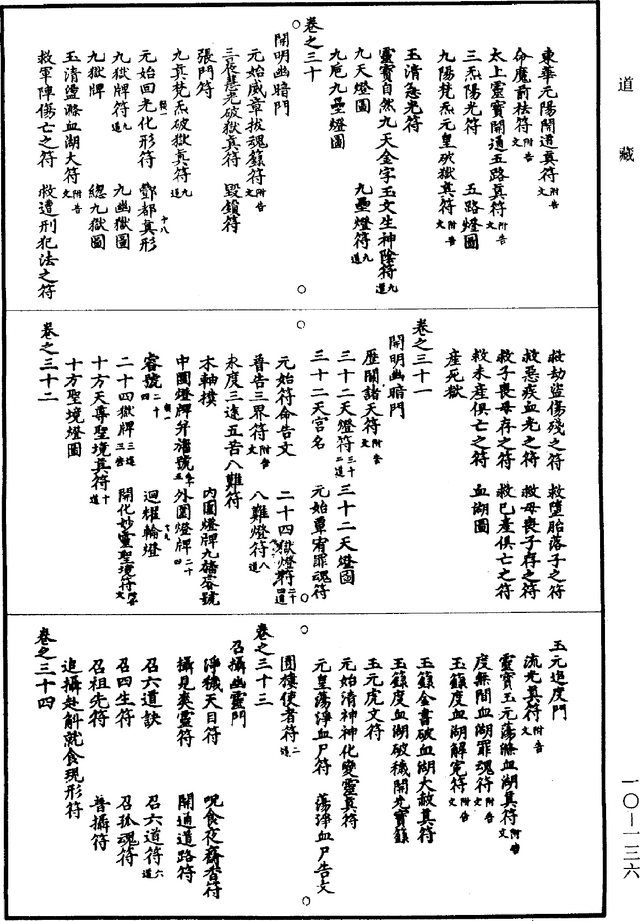 道藏
東華元陽開道真符附告文
命魔前祛符附告文
太上靈寶開通五路真符附告文
三炁陽光符 五路燈圖
九陽梵炁元皇破獄真符附告文
玉清急光符
靈寶自然九天金字玉文生神隂符九道
九天燈圖 九壘燈符九道
九卮九壘燈圖
卷之三十
開明幽暗門
元始威章拔魂籙符附告文
三夜慧光破獄真符 毀鎖符
張門符
九真梵炁破獄真符九道
元始回光化形符 酆都真形
九獄牌符九道 九幽獄圖
九獄牌 總九獄圖
玉清盪滌血湖大符附告文
救軍陣傷亡之符 救遭刑犯法之符
救劫盜傷殘之符 救墮胎落子之符
救惡疾血光之符 救母喪子存之符
救子喪母存之符 救已產俱亡之符
救未產俱亡之符 血湖圖
產死獄
卷之三十一
開明幽暗門
歷關諸天符附告文
三十二天燈符三十二道 三十二天燈圖
三十二天宮名 元始覃宥罪魂符
元始符命告文 二十四獄燈符二十四道
普告三界符附告文 八難燈符八道
永度三途五苦八難符
木軸樸 內圓燈牌九牆客號
中圓燈牌并牆號 外圓燈牌二十四
客號二十四 迴耀輪燈
二十四獄牌 開化妙靈聖境符
十方天尊聖境真符十道
十方聖境燈圖
卷之三十二
玉元追度門
流光真符附告文
靈寶玉元蕩滌血湖真符附告文
度無間血湖罪魂符附告文
玉籙度血湖解冤符附告文
玉籙金書破血湖大赦真符
玉籙度血湖破穢開光寶籙
玉元虎文符
元始清神神化變靈真符
元皇蕩淨血尸符 蕩淨血尸告文
圓樓使者符二道
卷之三十三
召攝幽靈門
淨穢天目符 呪食夜齋杳符
攝見爽靈符 開通道路符
召六道訣 召六道符六道
召四生符 召孤魂符
召祖先符 普攝符
追攝赴斛就食現形符
卷之三十四
一〇－一三六